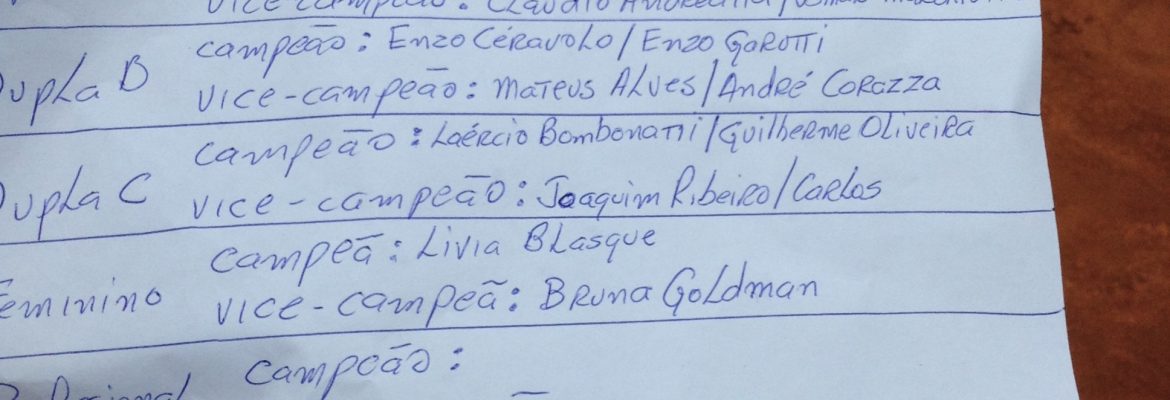 vice-campeão: Claudio
campeão: Enzo Céravolo/Enzo Garotti
Dupla B
vice-campeão: Mateus Alves/André Corazza
campeão: Laércio Bombonatti/Guilherme Oliveira
Dupla C
vice-campeão: Joaquim Ribeiro/Carlos
campeã: Livia Blasque
Feminino
vice-campeã: Bruna Goldman
campeão: